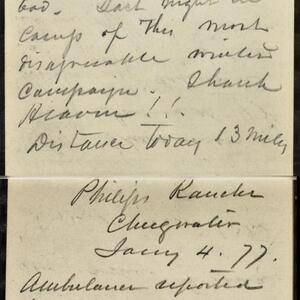 bad. Last night in
camp of this most
disagreeable winter
campaign. Thank
Heaven!!
Distance today 13 miles
Philips Ranche
Chugwater
Jany 4. 77.
Ambulance reported